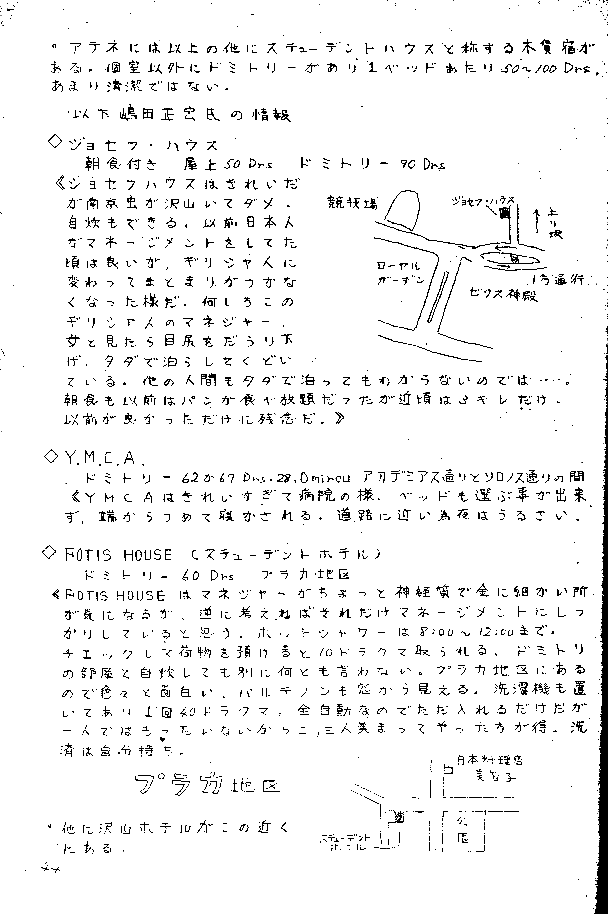 ・アテネには以上の他にスチューデントハウスと称する木賃宿が
ある。個室以外にドミトリーがあり1ベッドあたり50～100 Drs.
あまり清潔ではない。
以下嶋田正宏氏の情報
◇ジョセフ・ハウス
朝食付き 屋上50 Drs ドミトリー90 Drs
《ジョセフハウスはきれいだ
が南京虫が沢山いてダメ。
自炊もできる。以前日本人
がマネージメントをしてた
頃は良いが、ギリシャ人に
変わってまとまりがつかな
くなった様だ。何しろこの
ギリシァ人のマネジャー、
女と見たら目尻をだらり下
げ、タダで泊らしてくどい
ている。他の人間もタダで泊ってもわからないのでは…。
朝食も以前はパンが食べ放題だったが近頃は3キレだけ。
以前が良かっただけに残念だ。》
競技場
ジョセフ・ハウス
上り坂
ローヤル
ガーデン
1方通行
ゼウス神殿
◇Y.M.C.A.
ドミトリー62か67 Drs. 28, Omirou アカデミアス通りとソロノス通りの間
《YMCAはきれいすぎて病院の様、ベッドも選ぶ事が出来
ず、端からつめて寝かされる。道路に近い為夜はうるさい。
◇FOTIS HOUSE (スチューデントホテル)
ドミトリー60 Drs プラカ地区
《FOTIS HOUSEはマネジャーがちょっと神経質で金に細かい所
が気になるが、逆に考えればそれだけマネージメントにしっ
かりしていると思う。ホットシャワーは8:00～12:00まで。
チェックして荷物を預けると10ドラクマ取られる。ドミトリ
の部屋と自炊しても別に何とも言わない。プラカ地区にある
ので色々と面白い。パルテノンも窓から見える。洗濯機も置
いてあり1回40ドラクマ。全自動なのでただ入れるだけだが
一人ではもったいないから二、三人集まってやった方が得。洗
済は自分持ち。
プラカ地区
・他に沢山ホテルがこの近く
にある。
日本料理店
美智子
スチューデント
ホテル
公園
44